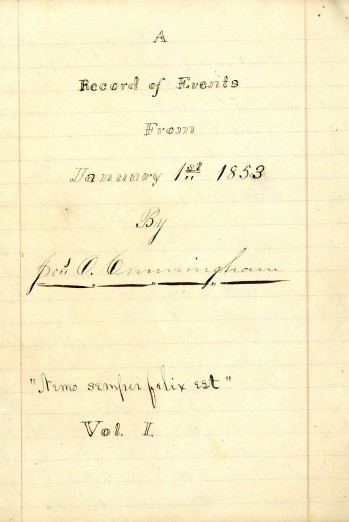 A
Record of Events
From
January 1st 1853
By
Jos. O. Cunningham
"Nemo semper felix est"
Vol. I.